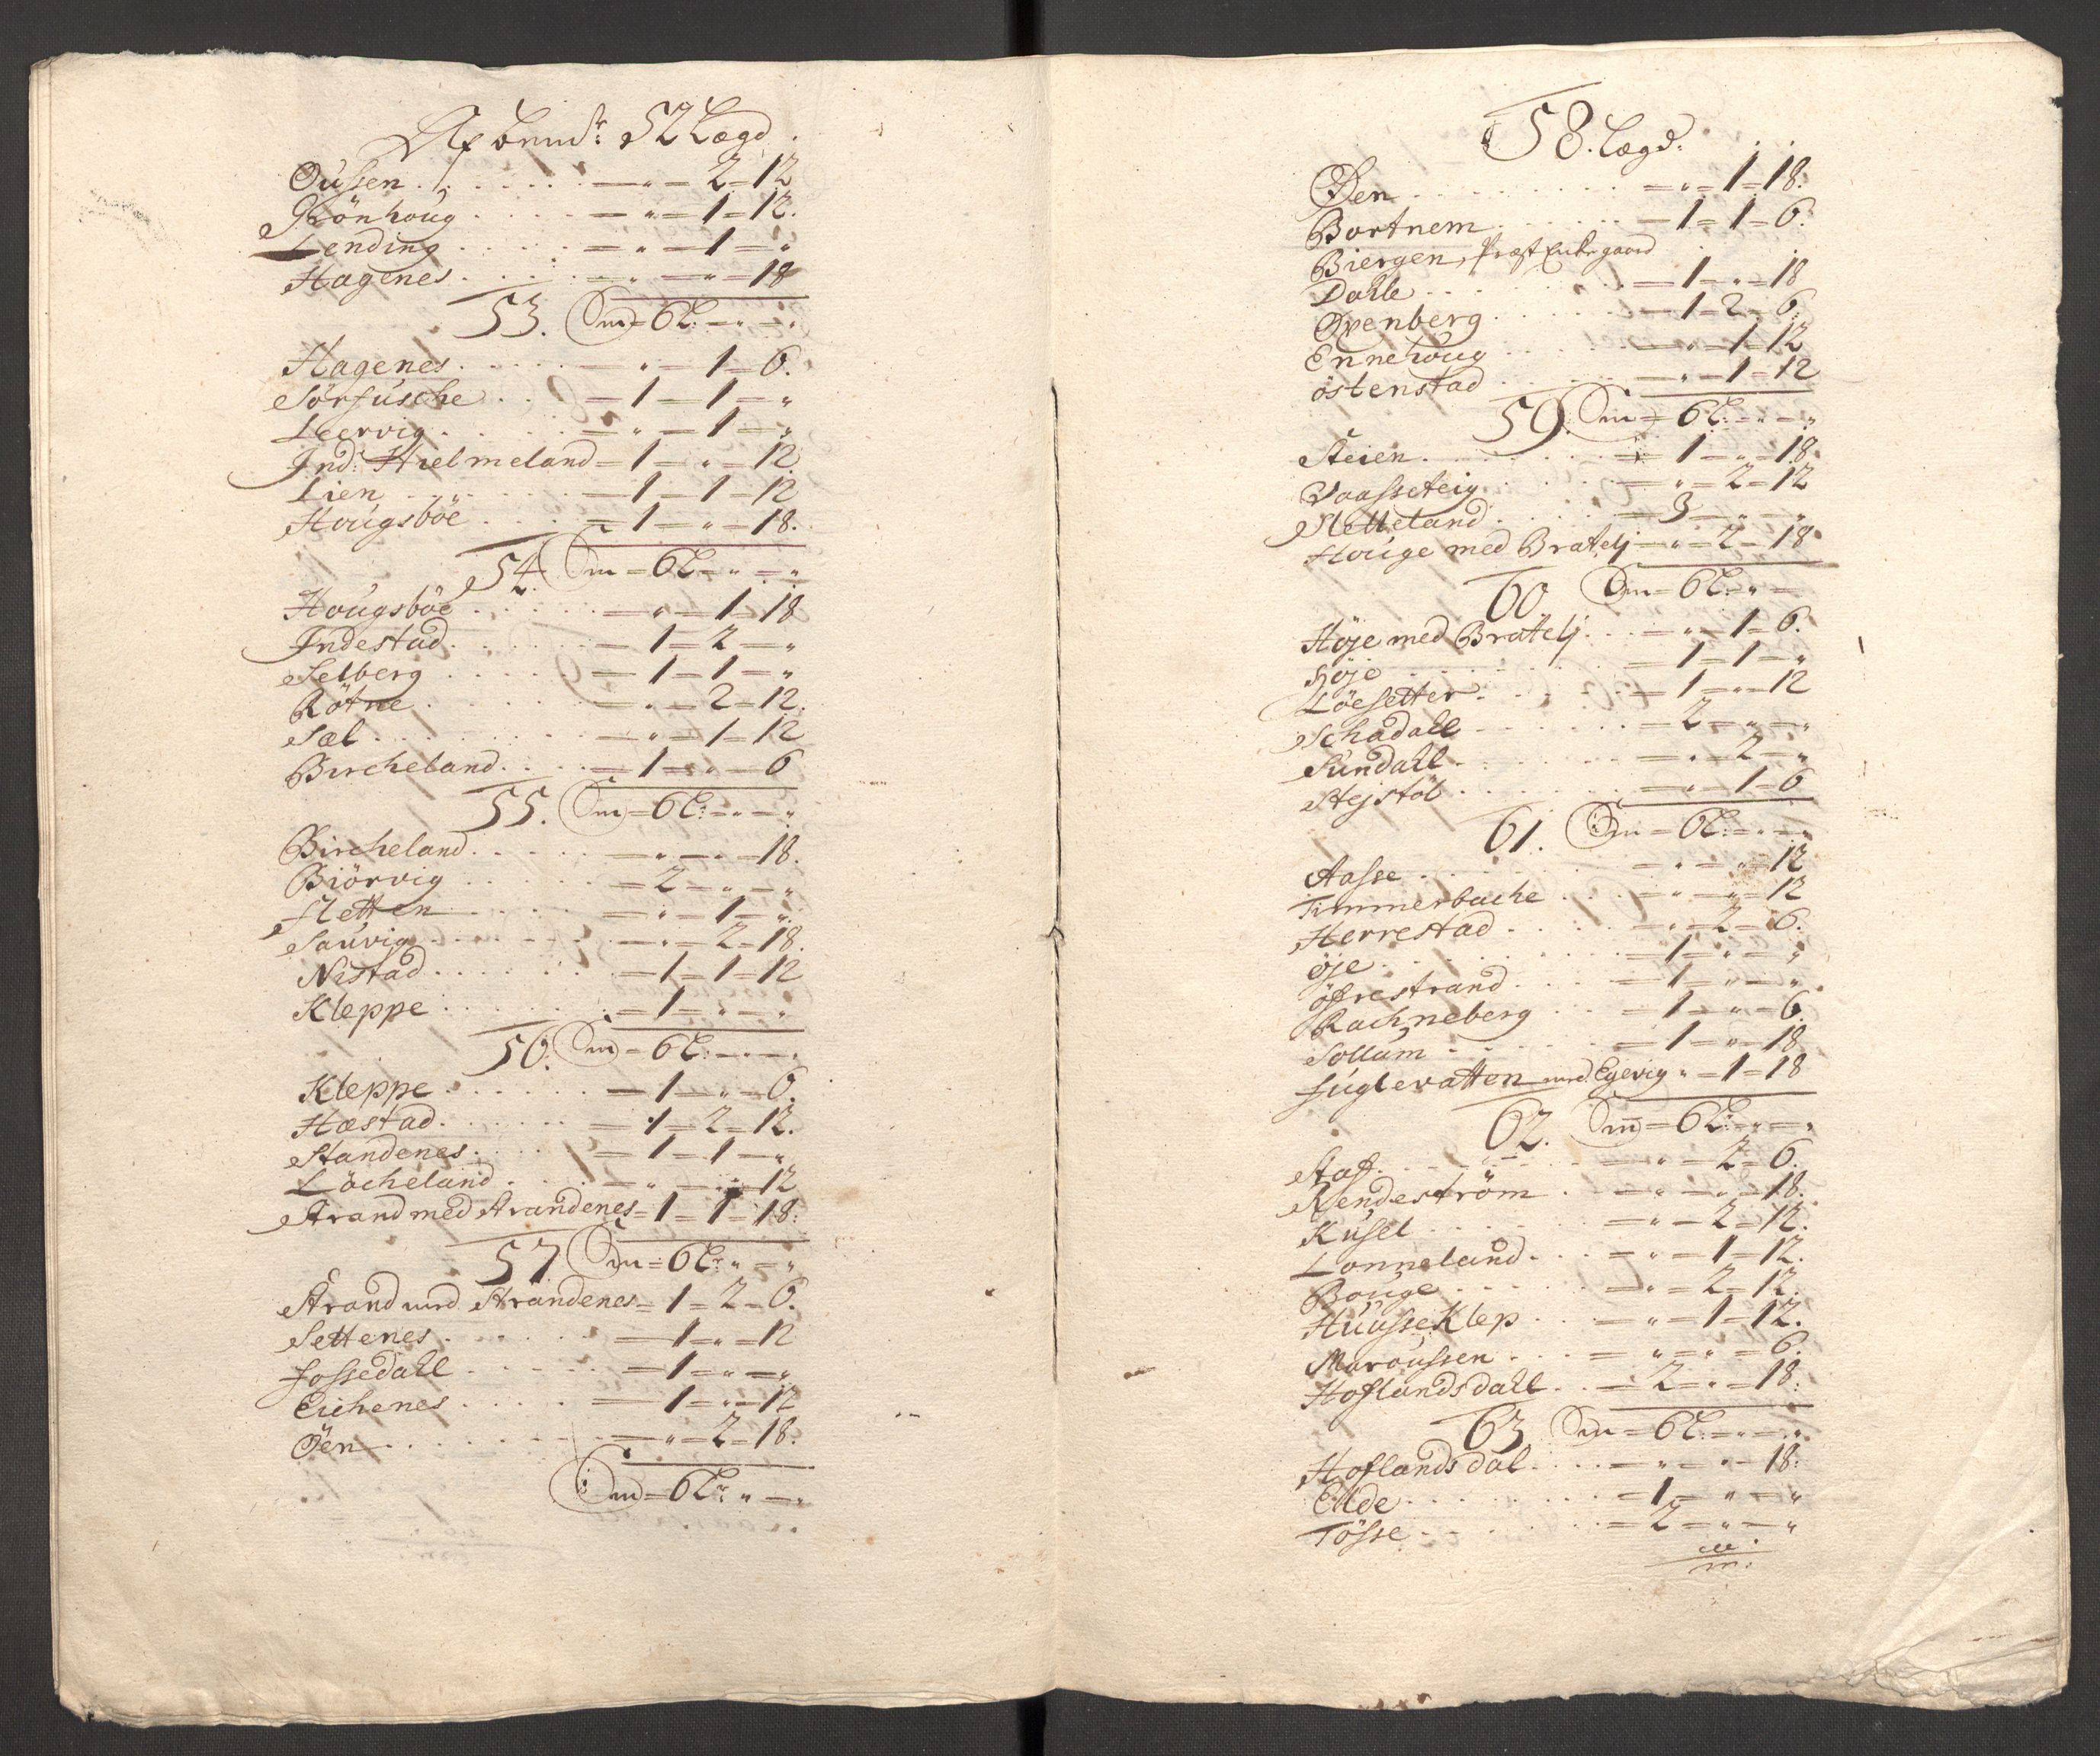 52 Lægd.
Oussen . . . . . . — " — 2 — 12
Grönhoug . . . . — " — 1 — 12.
Lending . . . . . — " — 1 — "
Hagenes . . . . . — " — " — 18
53. Sm = 6 L: — " — "
Hagenes . . . . . — " — 1 — 6.
Sörfusche . . . — 1 — 1 — "
Leervig . . . . . — " — 1 — "
Ind: Hielmeland — 1 — " — 12.
Lien . . . . . . — 1 — 1 — 12
Hougsböe . . . . — 1 — " — 18.
54. Sm = 6 L — " — "
Hougsböe . . . . . — " — 1 — 18
Indestad . . . . . — 1 — 2 — "
Selberg . . . . . — 1 — 1 — "
Rötne . . . . . . — " — 2 — 12.
Sæl . . . . . . . — " — 1 — 12
Bircheland . . . . — 1 — " — 6
55. Sm = 6 L: — " — "
Bircheland . . . . — " — " — 18.
Biörvig . . . . . — 2 — " — "
Sletten . . . . . — " — 1 — "
Sauvig . . . . . . — " — 2 — 18.
Nistad . . . . . . — 1 — 1 — 12
Kleppe . . . . . . — 1 — " — "
56. Sm = 6 L: — " — "
Kleppe . . . . . . — 1 — " — 6.
Hæstad . . . . . . — 1 — 2 — 12.
Standenes . . . . — 1 — 1 — "
Löcheland . . . . — " — " — 12
Strand med Strandenes = 1 = 1 = 18:
57 Sm = 6 L: " — "
Strand med Strandenes = 1 = 2 = 6.
Settenes . . . . . — 1 — " — 12
Fossedall . . . . . — 1 — " — "
Eichenes . . . . . — 1 — " — 12
Öen . . . . . . . — " — 2 — 18.
Sm = 6 L: " — "
58. Lægd:
Öen . . . . . . . — " — 1 — 18.
Bortnem . . . . . — 1 — 1 — 6.
Biergen, Præst Enkegaard
Dahle . . . . . . — 1 — " — 18
Openberg . . . . . — 1 — 2 — 6.
Ennehoug . . . . . — " — 1 — 12
östenstad . . . . . — " — 1 — 12
59. Sm = 6 L: — " — "
Steien . . . . . . — 1 — " — 18.
Vaasseteig . . . . — " — 2 — 12
Sletteland . . . . — 3 — " — "
Houge med Bratelj — " — 2 — 18
60 Sm = 6 L: — " —
Höje med Bratelj . . . — " — 1 — 6.
Höje . . . . . . — 1 — 1 — "
Löesetter . . . . — 1 — " — 12
Schadall . . . . . — 2 — " — "
Sundall . . . . . — " — 2 — "
Stejstöl . . . . . — " — 1 — 6
61. Sm = 6 L: — " — "
Aasse . . . . . . — " — " — 12
Timmerbache . . . — " — " — 12
Herrestad . . . . — " — 2 — 6.
öje . . . . . . . — 1 — " — "
öfrestrand . . . . — 1 — " — "
Rachneberg . . . . — 1 — " — 6.
Sollum . . . . . — 1 — " — 18
Fuglevatten med Egevig " — 1 — 18
62. Sm = 6 L: " — "
Staf . . . . . . — " — 2 — 6.
Rendeström . . . — " — " — 18.
Kusel . . . . . . — " — 2 — 12.
Lonneland . . . . — " — 1 — 12.
Bouge . . . . . . — " — 2 — 12.
Huusseklep . . . — " — 1 — 12.
Maroussen . . . . — " — " — 6.
Hoflandsdall . . . — 2 — " — 18:
63 Sm = 6 L: — " — "
Hoflandsdal . . . . — " — " — 18:
Elde . . . . . . — 1 — " — "
Tösse . . . . . . — 2 — " — "